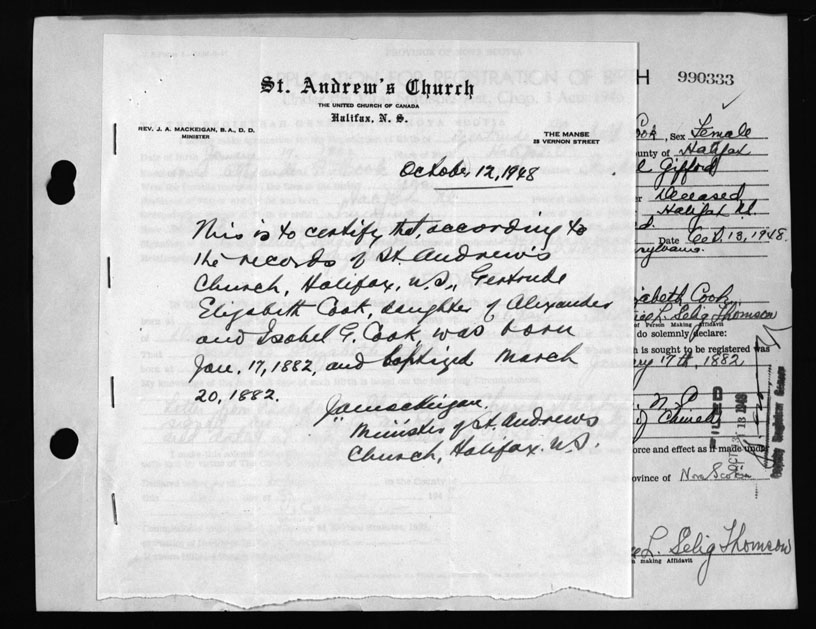 St. Andrew's Church
THE UNITED CHURCH OF CANADA
Halifax, N. S.
REV. J. A. MACKEIGAN, B. A., D. D.
MINISTER
THE MANSE
25 VERNON STREET
October 12, 1948
This is to certify that, according to
the records of St. Andrew's
Church, Halifax, N.S., Gertrude
Elizabeth Cook, daughter of Alexander
and Isobel G. Cook, was born
Jan. 17, 1882, and baptized March
20, 1882.
J.A. Mackeigan.
Minister of St. Andrew's
Church, Halifax. N.S.
H 990333
ook, Sex Female
ounty of Halifax
Gifford
Deceased
Halifax
Date Oct. 13, 1948.
abeth Cook.
L. Selig Thomson
of Person Making Affidavit
do solemnly declare:
h is sought to be registered was
ry 17th, 1882
N. S.
of Church
orce and effect as if made under
FILED
OCT 13 1948
Deputy Registrar General
ovince of Nova Scotia
L. Selig Thomson
making Affidavit